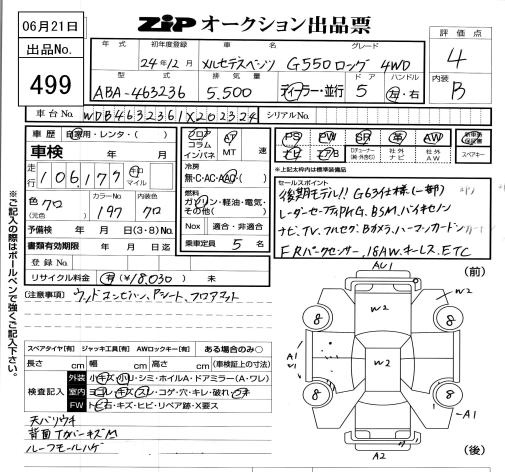 06月21日
出品No.
499
ZIP オークション出品票
評価点
4
内装
B
年式 初年度登録 車名 グレード
24年12月 メルセデスベンツ G550ロング 4WD
型式 排気量 ドア ハンドル
ABA-463236 5.500 ディーラー・並行 5 左・右
車台No. WDB4632361X202324 シリアルNo.
車歴 自家用・レンタ・( )
車検 年 月
走行 106,177 キロ マイル
色 クロ (元色) カラーNo. 197 クロ
予備検 年 月 日(3・8)No.
書類有効期限 年 月 日迄
登録No.
リサイクル料金 有(¥18,030) 未
フロア コラム インパネ AT MT 速
冷房
無・C・AC・AAC・( )
燃料
ガソリン・軽油・電気・その他( )
Nox 適合・非適合
乗車定員 5 名
PS PW SR 革 AW 新車時保証書
ナビ TV エアB Dチューナー(純・外含む) 社外ナビ 社外AW スペアキー
※上記太枠内は標準装備品
セールスポイント
後期モデル!! G63仕様(一部)
レーダーセーフティPKG. BSM. バイキセノン
ナビ. TV. フルセグ. Bカメラ. ハーマンカードン
FRパークセンサー. 18AW. キーレス. ETC
[注意事項] ウッドコンビハン、Pシート、フロアマット
スペアタイヤ[有] ジャッキ工具[有] AWロックキー[有] ある場合のみ○
長さ cm 幅 cm 高さ cm (車検証上の寸法)
検査記入
外装 小キズ・小U・シミ・ホイルA・ドアミラー(A・ワレ)
室内 ヨゴレ・キズ・スレ・コゲ・穴・キレ・破れ・ウキ
FW トビ石・キズ・ヒビ・リペア跡・X要ス
天バリウキ
背面Tカバーキズ M
ルーフモールハゲ
※ご記入の際はボールペンで強くご記入下さい。
(前)
AU1
W2
W2
8
8
W2
A1
8
8
A1
A2
(後)